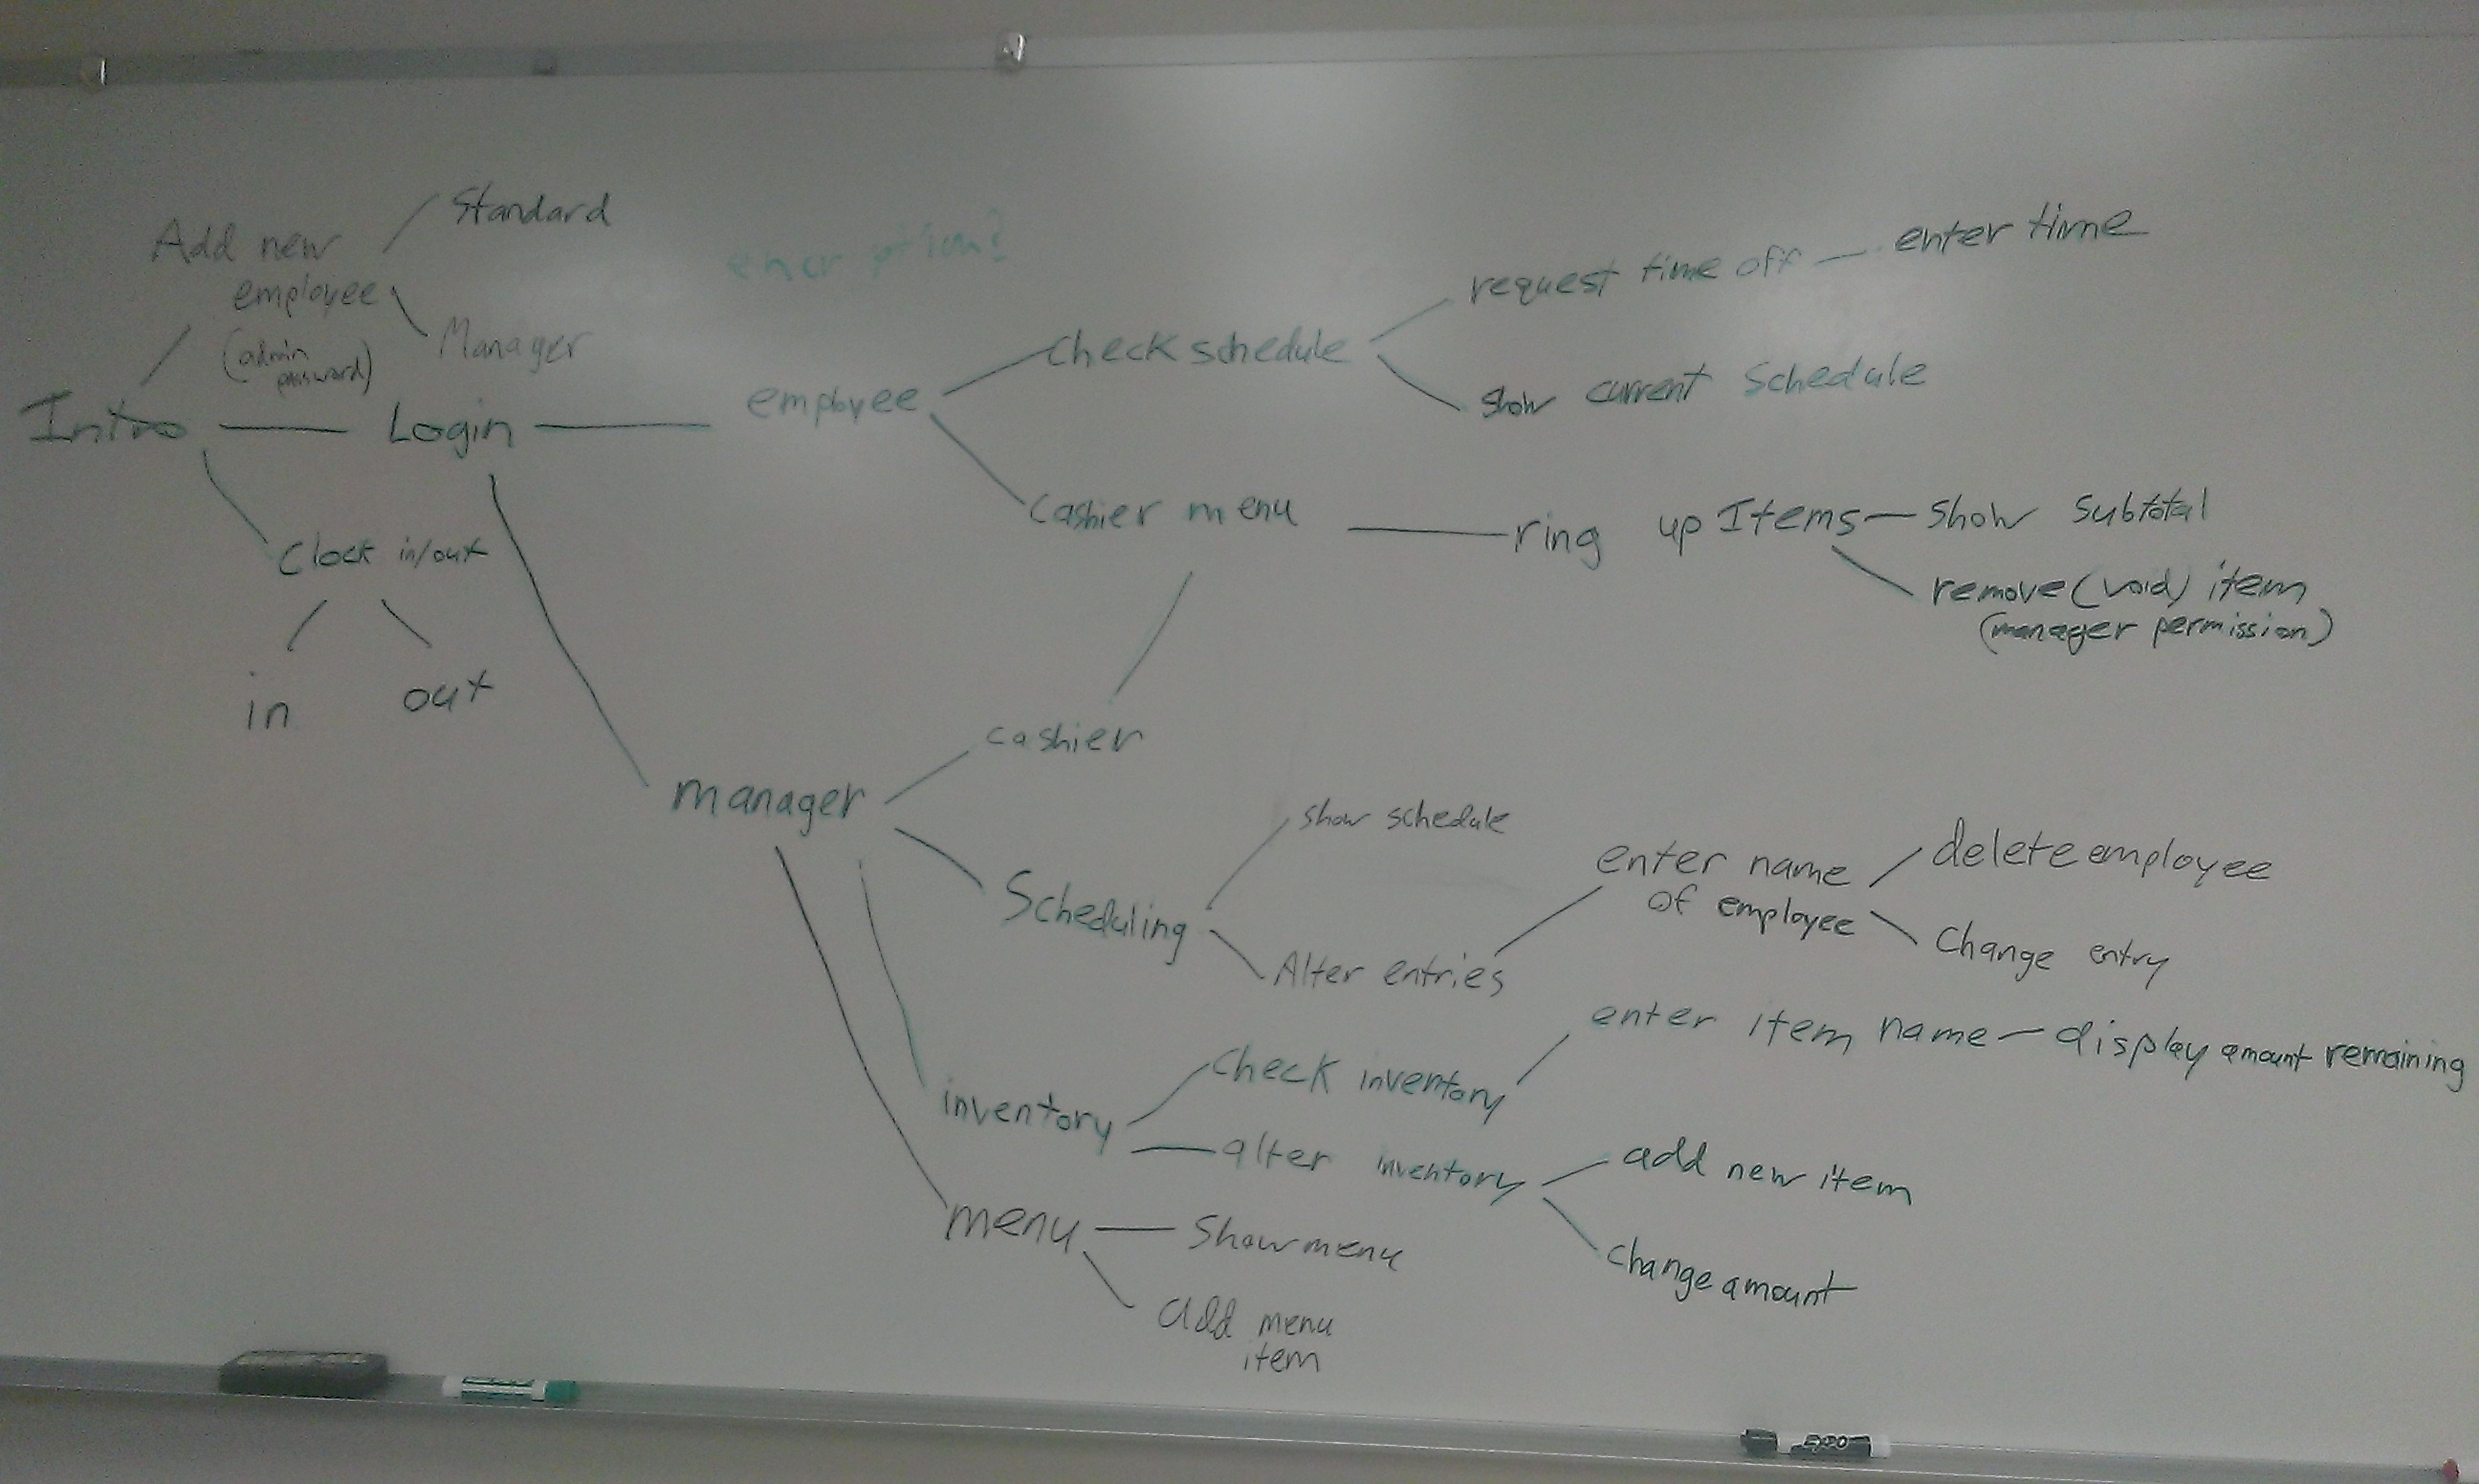 Standard
Add new
employee
(admin
password)
Manager
encrption?
Intro
Login
employee
Check schedule
request time off
enter time
show current schedule
Clock in/out
in
out
Cashier menu
ring up Items
show subtotal
remove (void) item
(manager permission)
cashier
manager
Scheduling
show schedule
Alter entries
enter name
of employee
delete employee
Change entry
inventory
Check inventory
enter item name
display amount remaining
alter inventory
add new item
change amount
menu
Show menu
add menu
item
EXPO